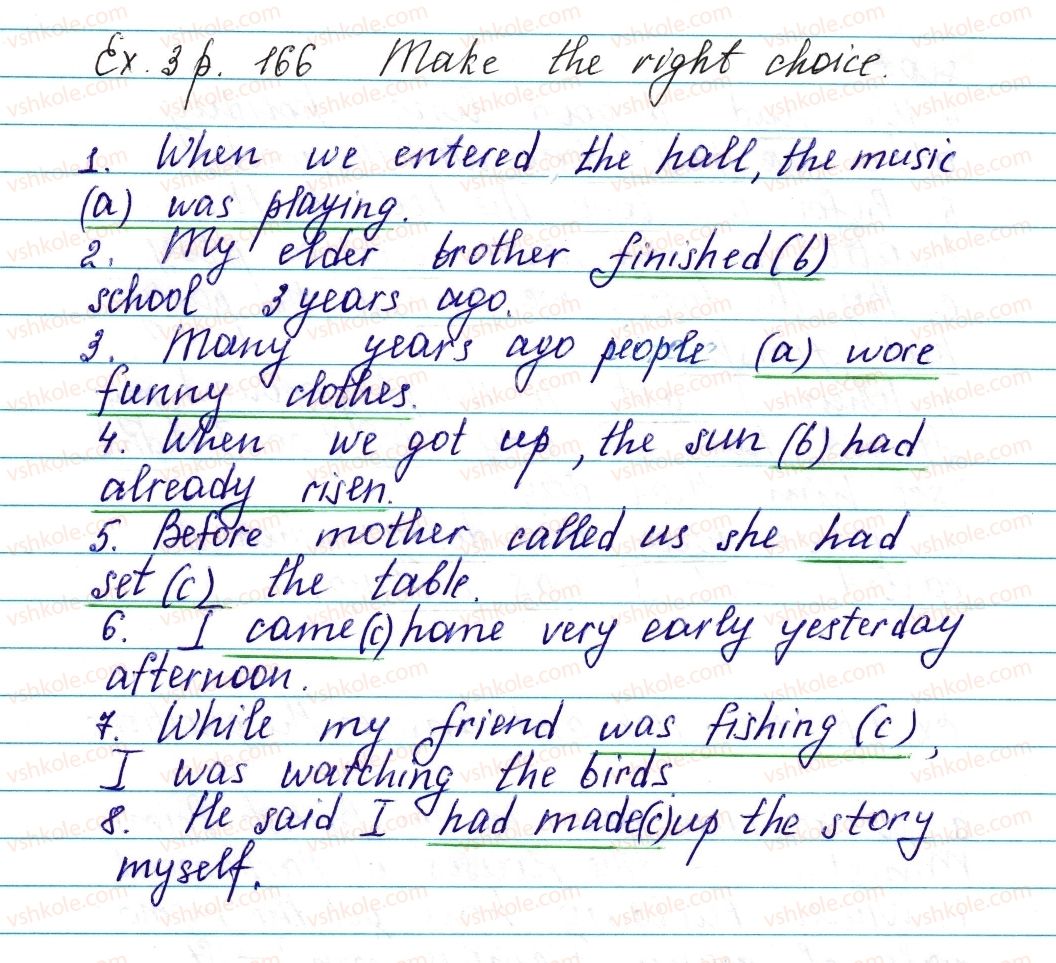 Ex. 3 p. 166 Make the right choice.
1. When we entered the hall, the music
(a) was playing.
2. My elder brother finished (b)
school 3 years ago.
3. Many years ago people (a) wore
funny clothes.
4. When we got up, the sun (b) had
already risen.
5. Before mother called us she had
set (c) the table.
6. I came (c) home very early yesterday
afternoon.
7. While my friend was fishing (c),
I was watching the birds
8. He said I had made (c) up the story
myself.